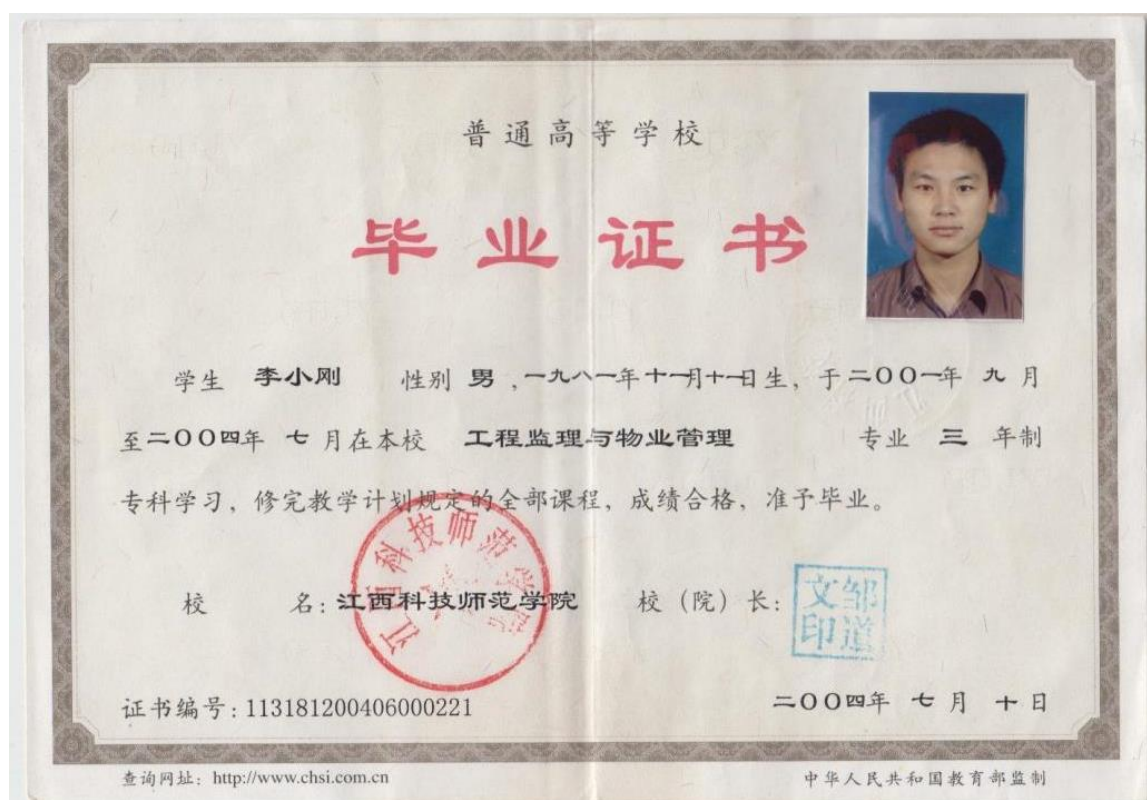 普通高等学校
毕业证书
学生 李小刚 性别 男 ,一九八一年十一月十一日生, 于二00一年 九 月
至二00四年 七 月在本校 工程监理与物业管理 专业 三 年制
专科学习, 修完教学计划规定的全部课程, 成绩合格, 准予毕业。
江西科技师范学院
校 名: 江西科技师范学院 校 (院) 长: 邹道文印
证书编号: 113181200406000221 二00四年 七 月 十 日
查询网址: http://www.chsi.com.cn 中华人民共和国教育部监制